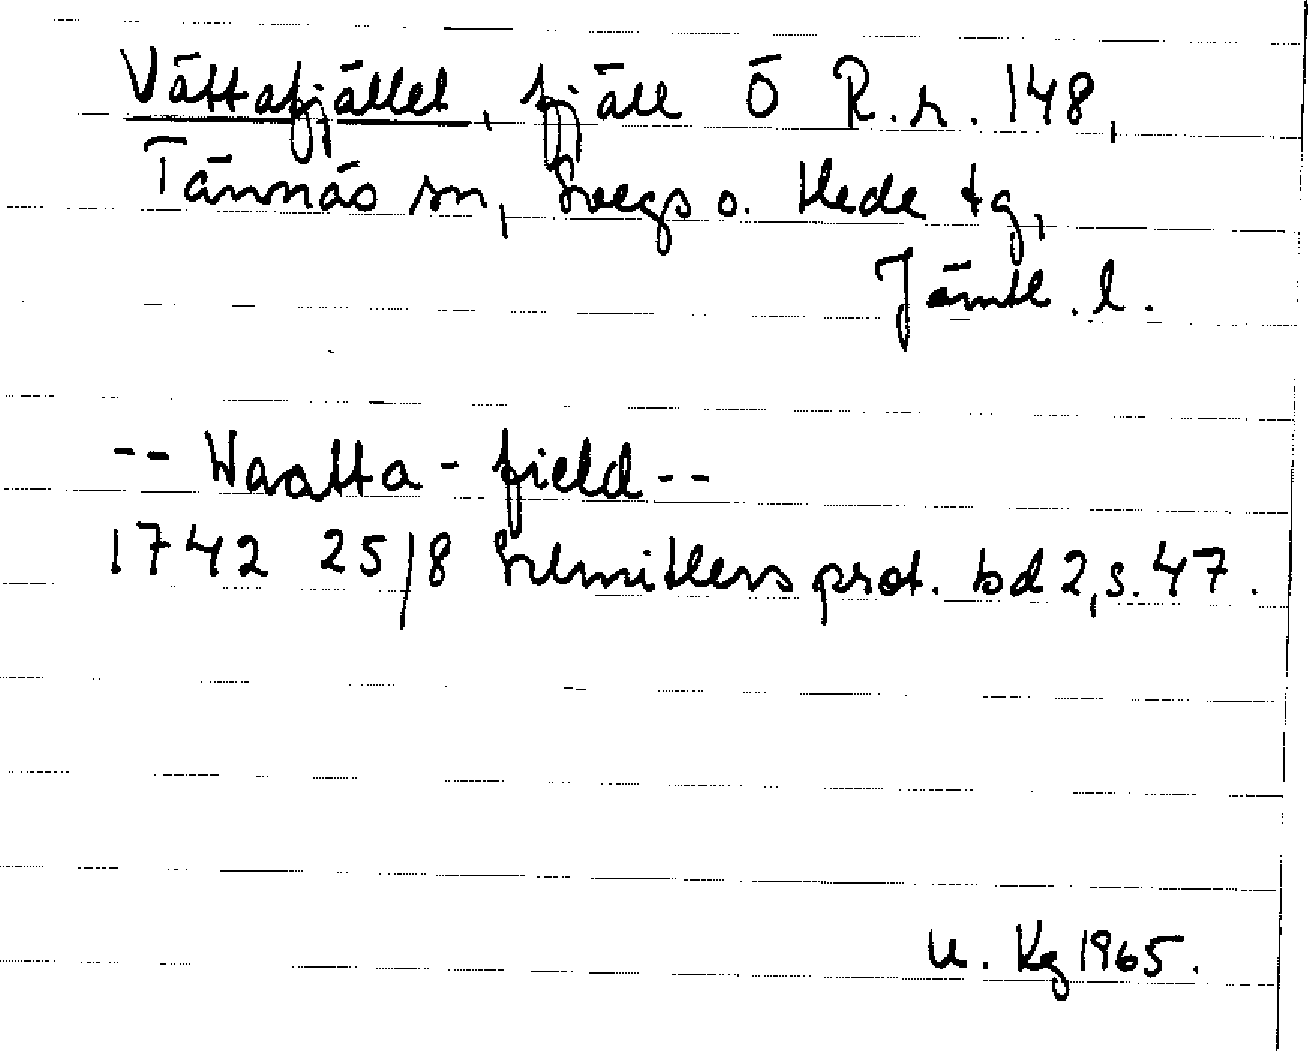 Vättafjället, fjäll Ö R.r. 148,
Tännäs sn, Svegs o. Hede tg,
Jämtl. l.
-- Waatta - field --
1742 25/8 Schnitlers prot. bd 2, s. 47.
U. Kg 1965.